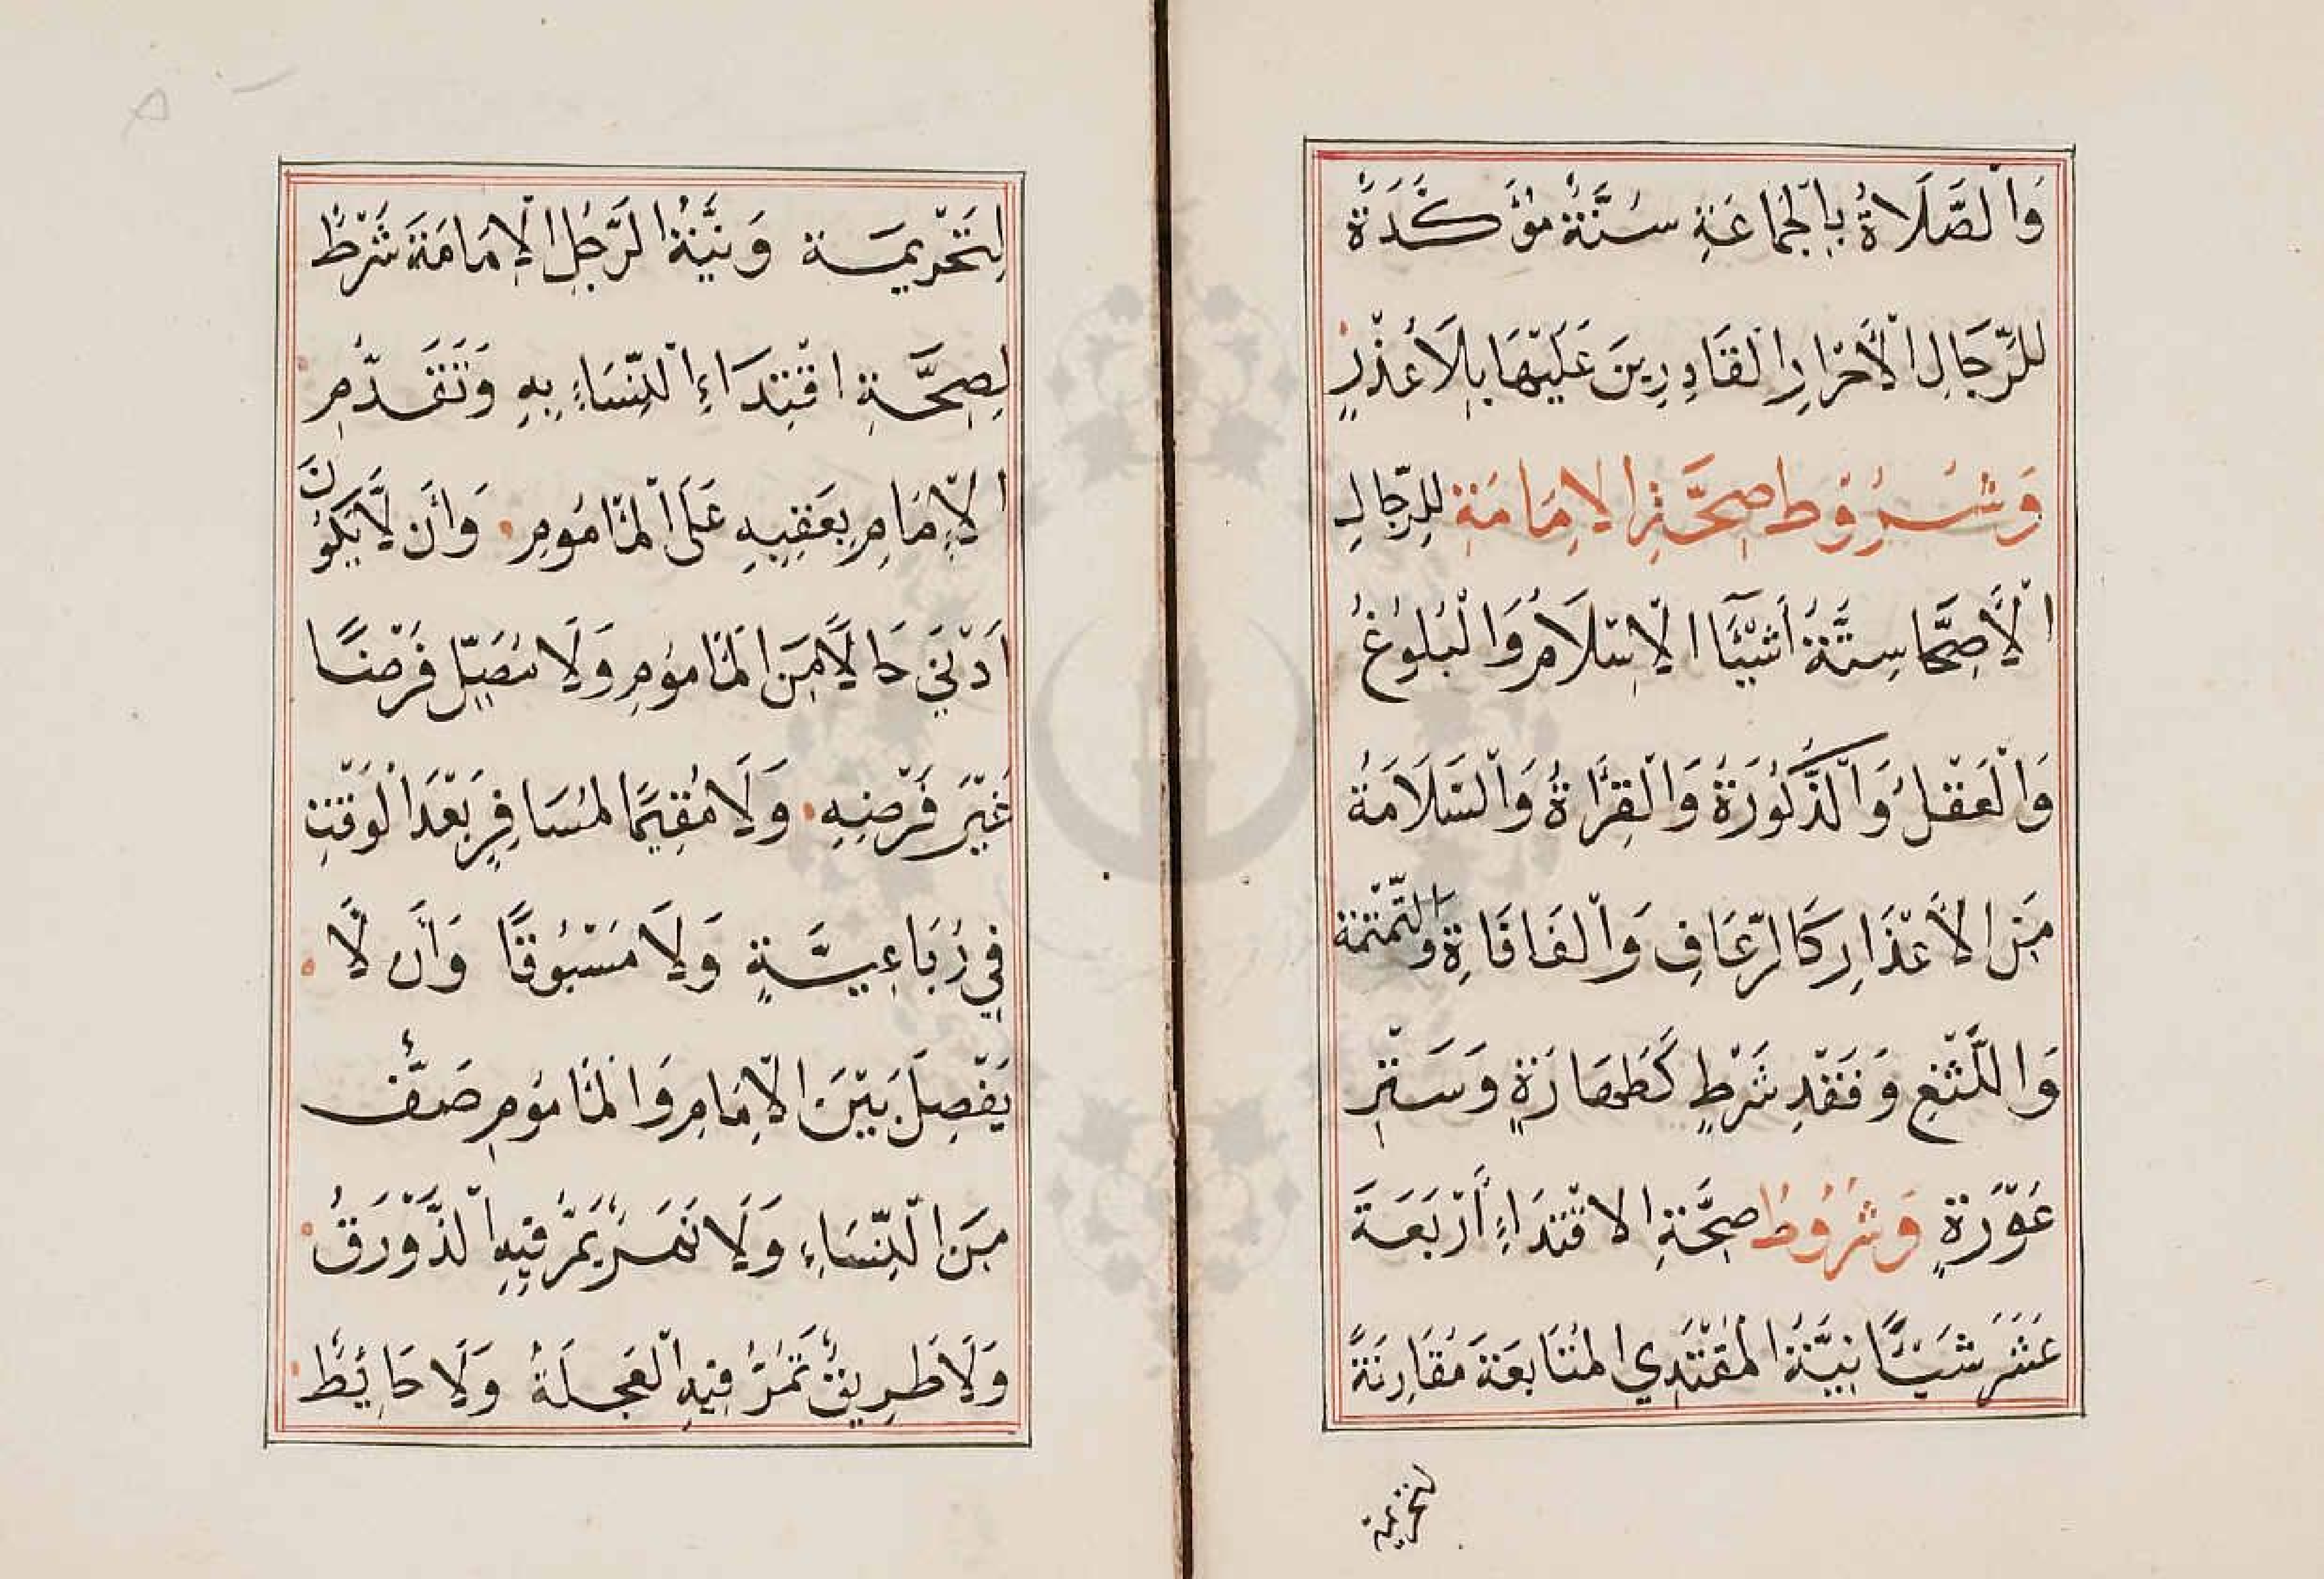 وَالصَّلَاةُ بِالْجَمَاعَةِ سُنَّةٌ مُؤَكَّدَةٌ
لِلرِّجَالِ الْأَحْرَارِ الْقَادِرِينَ عَلَيْهَا بِلَا عُذْرٍ
وَشُرُوطُ صِحَّةِ الْإِمَامَةِ لِلرِّجَالِ
الْأَصِحَّا سِتَّةُ أَشْيَآءَ الْإِسْلَامُ وَالْبُلُوغُ
وَالْعَقْلُ وَالذُّكُورَةُ وَالْقِرَاةُ وَالسَّلَامَةُ
مِنَ الْأَعْذَارِ كَالرُّعَافِ وَالْفَافَاةِ وَالتَّمْتَمَةِ
وَاللَّثْغِ وَفَقْدِ شَرْطٍ كَطَهَارَةٍ وَسَتْرِ
عَوْرَةٍ وَشُرُوطُ صِحَّةِ الْاقْتِدَاءِ أَرْبَعَةَ
عَشَرَ شَيْئًا نِيَّةُ الْمُقْتَدِي الْمُتَابَعَةَ مُقَارِنَةً
لتحريمة
لِتَحْرِيمَة وَنِيَّةُ الرَّجُلِ الْإِمَامَةَ شَرْطٌ
لِصِحَّةِ اقْتِدَاءِ النِّسَاءِ بِهِ وَتَقَدُّمُ
الْإِمَامِ بِعَقِبِهِ عَلَى الْمَأْمُومِ وَأَن لَّا يَكُونَ
أَدْنَى حَالًا مِنَ الْمَأْمُومِ وَلَا يُصَلِّي فَرْضًا
غَيْرَ فَرْضِهِ وَلَا مُقِيمًا لِمُسَافِرٍ بَعْدَ الْوَقْتِ
فِي رُبَاعِيَّةٍ وَلَا مَسْبُوقًا وَأَن لَّا
يَفْصِلَ بَيْنَ الْإِمَامِ وَالْمَأْمُومِ صَفٌّ
مِنَ النِّسَاءِ وَلَا نَهَرٌ يَمُرُّ فِيهِ الذَّوْرَقُ
وَلَا طَرِيقٌ تَمُرُّ فِيهِ الْعَجَلَةُ وَلَا حَائِطٌ